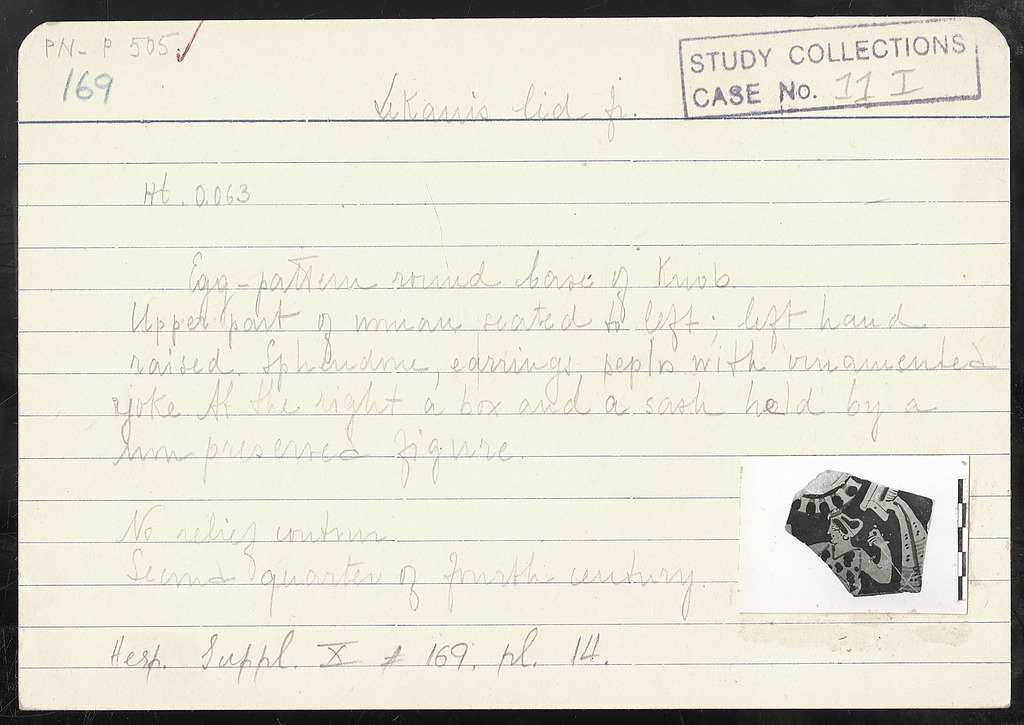 PN-P 505 ✓
169
STUDY COLLECTIONS
CASE No. 11 I
Lekanis lid fr.
Ht. 0.063
Egg-pattern round base of Knob.
Upper part of woman seated to left; left hand
raised. Sphendone, earrings, peplos with ornamented
yoke At the right a box and a sash held by a
non preserved figure.
No relief contour
Second quarter of fourth century.
Hesp. Suppl. X # 169. pl. 14.